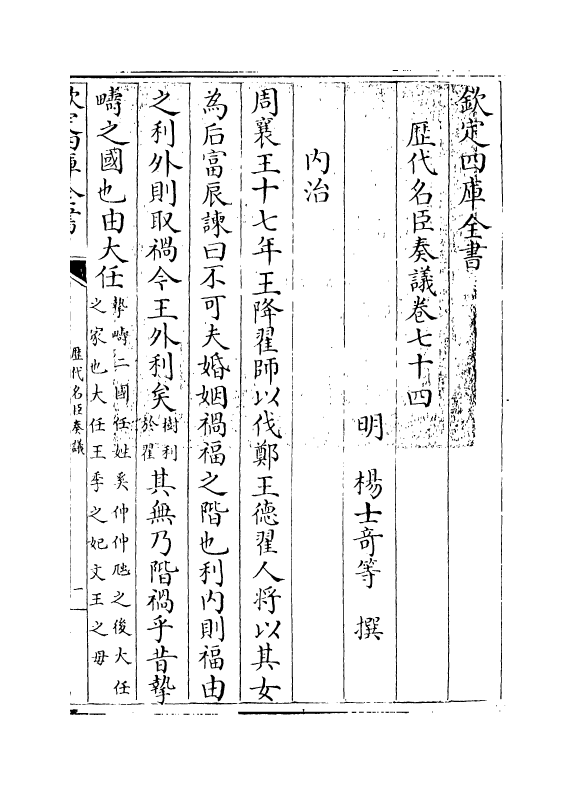 欽定四庫全書
歴代名臣奏議卷七十四
明 楊士奇等 撰
内治
周襄王十七年王降翟師以伐鄭王德翟人将以其女
為后富辰諫曰不可夫婚姻禍福之階也利内則福由
之利外則取禍今王外利矣樹利於翟其無乃階禍乎昔摯
疇之國也由大任摯疇二國任姓奚仲仲虺之後大任之家也大任王季之妃文王之毋
欽定四庫全書
歴代名臣奏議
一